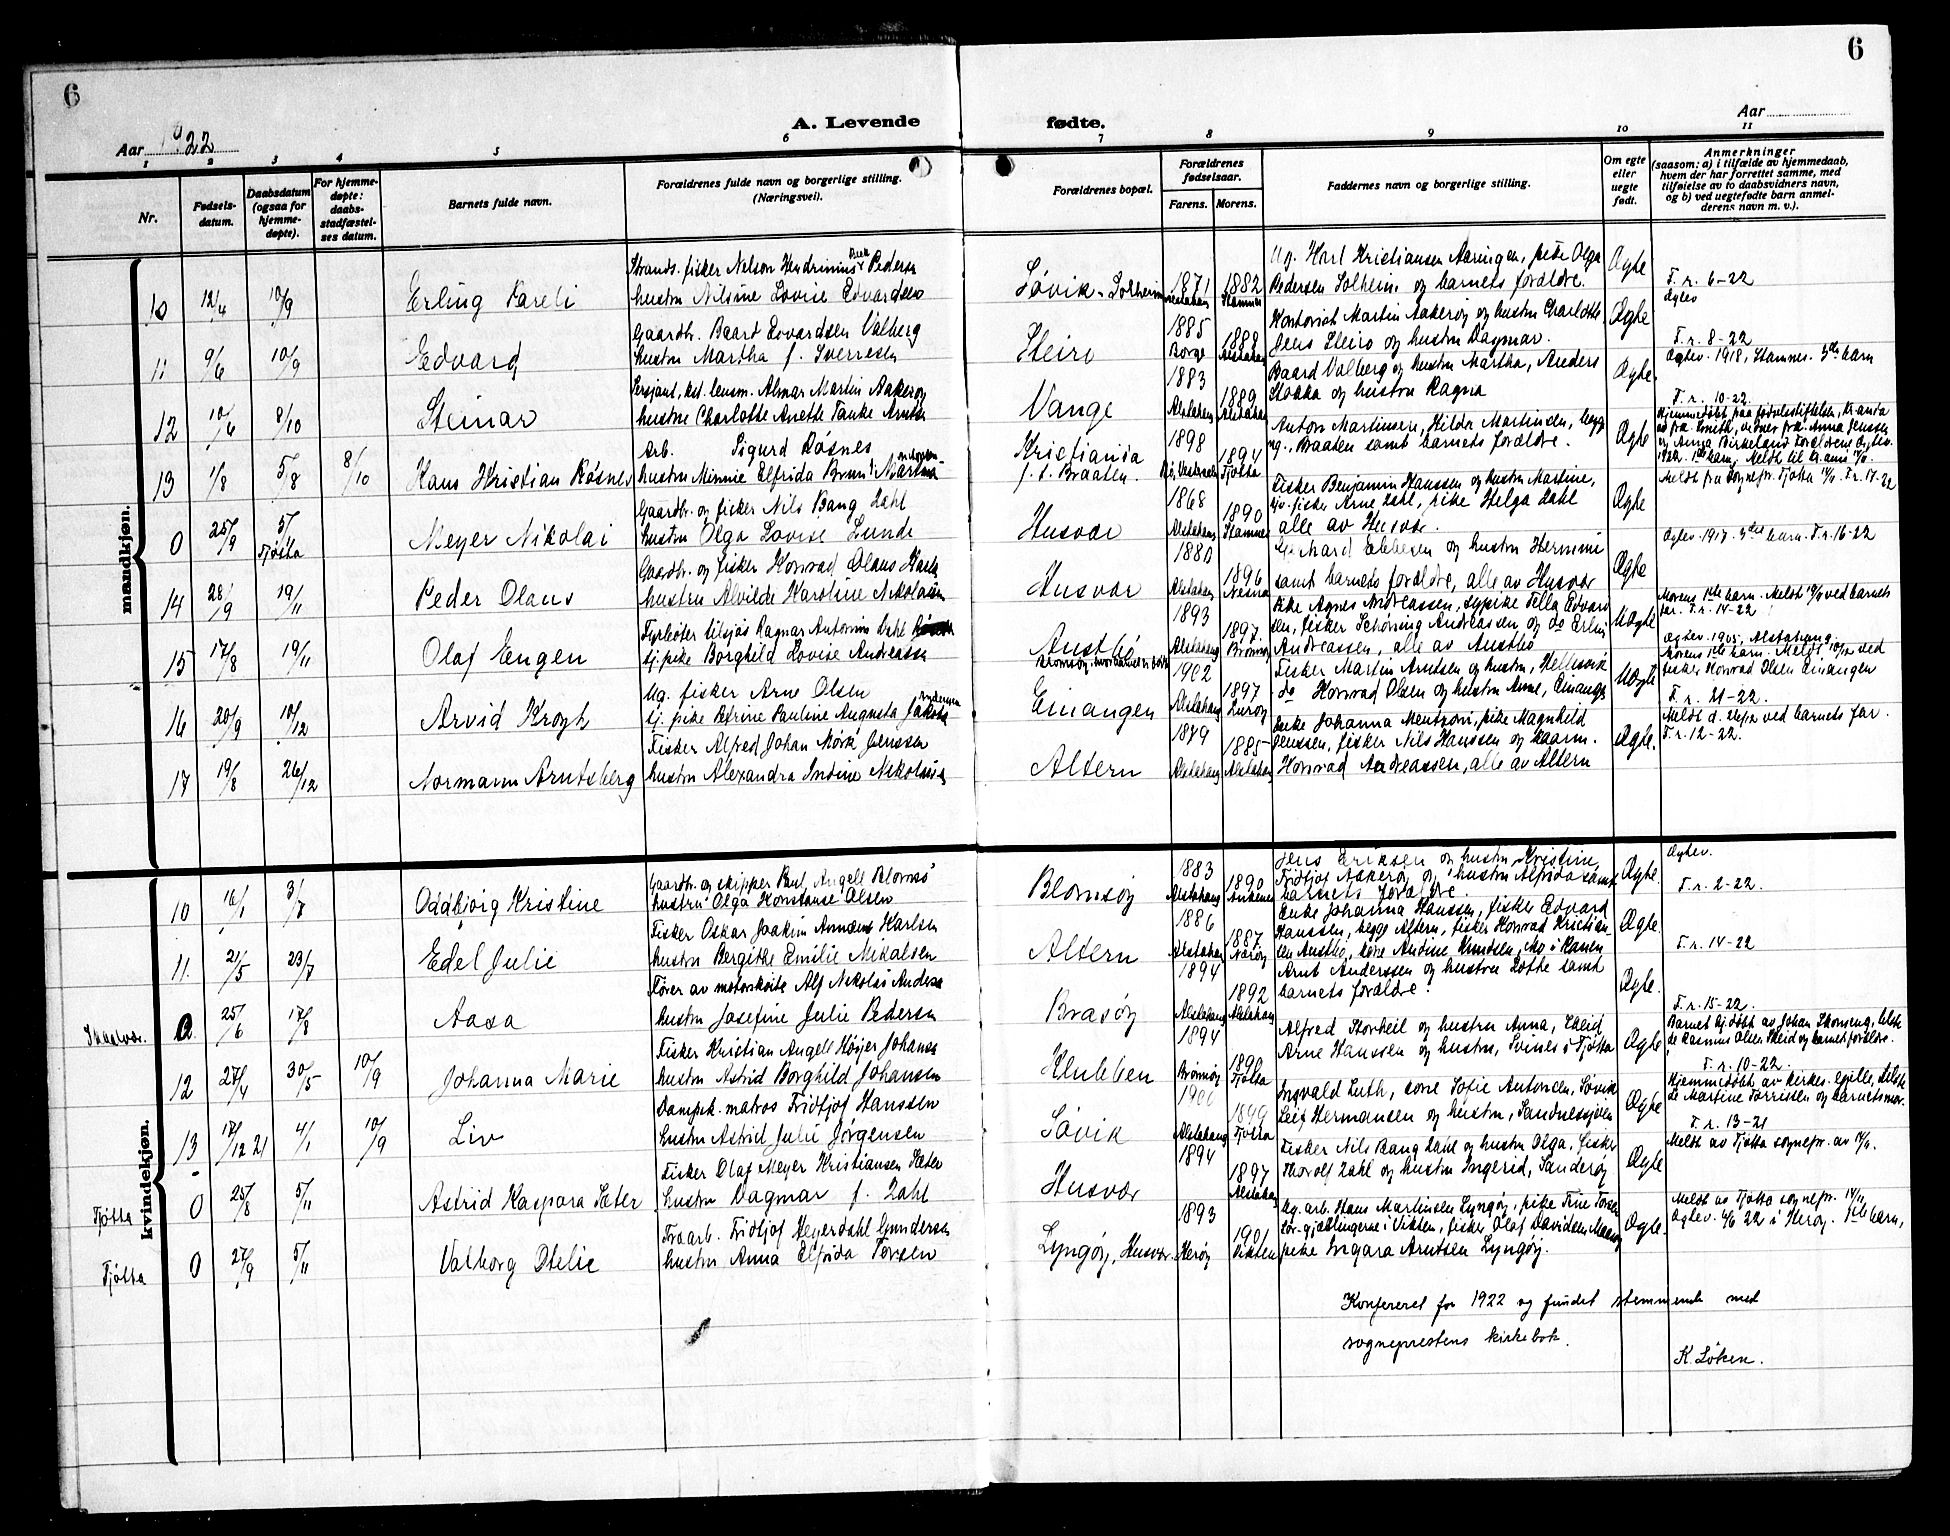 6
6
Aar 1922
A. Levende
fødte.
Aar
1 2 3 4 5 6 7 8 9 10 11
Nr.
Fødsels-
datum.
Daabsdatum
(ogsaa for
hjemme-
døpte).
For hjemme-
døpte:
daabs-
stadfæstel-
ses datum.
Barnets fulde navn.
Forældrenes fulde navn og borgerlige stilling.
(Næringsvei).
Forældrenes bopæl.
Forældrenes
fødselsaar.
Farens. Morens.
Faddernes navn og borgerlige stilling.
Om egte
eller
uegte
født.
Anmerkninger
(saasom: a) i tilfælde av hjemmedaab,
hvem der har forrettet samme, med
tilføielse av to daabsvidners navn,
og b) ved uegtefødte barn anmel-
derens navn m. v.).
mandkjøn.
10 12/4 10/9 Erling Kareli
Strands. fisker Nelson Hendrinius Pedersen
hustru Nilsine Lovise Edvardsen
Søvik - Solheim 1871 Alstahaug 1882 Stamnes
Ug. Karl Kristiansen Aaringen, pike Olga
Pedersen Solheim og barnets forældre.
Ægte
T. r. 6-22
11 9/6 10/9 Edvard
Gaardbr. Baard Edvardsen Valberg
hustru Martha f. Sverresen
Steiro 1885 Borge 1888 Alstahaug
Kontorist Martin Aakerøy og hustru Charlotte
Jens Steiro og hustru Dagmar.
Ægte
Ægtev.
T. r. 8-22
12 10/6 8/10 Steinar
Sersjant, kst. lensm. Almar Martin Aakerøy
hustru Charlotte Anette Tanke Arntsen
Vange 1883 Alstahaug 1889 Alstahaug
Baard Valberg og hustru Martha, Anders
Stokka og hustru Ragna
Ægte.
Ægtev. 1918, Stamnes. 3die barn
T. r. 10-22.
13 1/8 5/8 8/10 Hans Kristian Røsnes
Arb. Sigurd Røsnes
hustru Minnie Elfrida Brun Martin
Kristiania
f. t. Braaten. 1898 1894 Tjøtta
Anton Martinsen, Hilda Martinsen, begge
ug., Braaten samt barnets forældre.
Ægte
Hjemmedøbt paa fødselsstiftelsen, Kr.ania
av frk. Smith, vidner frk. Anna Jenssen
og Anna Birkeland Forældrene ægtev.
1922. 1ste barn. Meldt til Kr.ania
0 25/9 5/11 Tjøtta Meyer Nikolai
Gaardbr. og fisker Nils Bang Zahl
hustru Olga Lovise Lunde
Husvær 1868 Alstahaug 1890 Stamnes
Fisker Benjamin Hanssen og hustru Martine,
fisker Arne Zahl, pike Helga Zahl
alle av Husvær.
Ægte
Meldt fra sognepr. Tjøtta T. r. 17-22
14 28/9 19/11 Peder Olaus
Gaardbr. og fisker Konrad Olaus
hustru Alvilde Karoline Nikolaisen
Husvær 1880 Alstahaug 1896 Nesna
Edvard Ebbesen og hustru Hermine
samt barnets forældre, alle av Husvær
Ægte
Ægtev. 1917. 3die barn. T. r. 16-22
15 17/8 19/11 Olaf Engen
Fyrbøter tilsjøs Ragnar Antonius Dahl
tj. pike Borghild Lovise Andreassen
Austbø 1893 Alstahaug 1897 Brønnøy
Pike Agnes Andreassen, sypike Tella Edvard-
sen, fisker Schøning Andreassen og do Erling
Andreassen, alle av Austbø
Uægte
Morens 1ste barn. Meldt ved barnets
far. T. r. 14-22
16 20/9 10/12 Arvid Krogh
Ug. fisker Arne Olsen
tj. pike Petrine Pauline Augusta Jakobsen
Einangen 1902 Alstahaug 1897 Lurøy
Fisker Martin Arntsen og hustru, Hellesvik
do Konrad Olsen og hustru Anne, Einangen
Uægte
Morens 1ste barn. Meldt 10/12 ved
fisker Konrad Olsen Einangen
T. r. 21-22.
17 19/8 26/12 Normann Arntsberg
Fisker Alfred Johan Mørk Jenssen
hustru Alexandra Indine Nikolaisen
Altern 1879 Alstahaug 1885 Alstahaug
Enke Johanna Mentzoni, pike Magnhild
Jenssen, fisker Nils Hanssen og
Konrad Andreassen, alle av Altern
Ægte.
Meldt d. 26/12 ved barnets far.
T. r. 12-22.
kvindekjøn.
10 16/1 3/7 Oddbjørg Kristine
Gaardbr. og skipper Paul Angell Blomsø
hustru Olga Konstanse Olsen
Blomsøy 1883 Alstahaug 1890 Ankenes
Jens Eriksen og hustru Kristine,
Fridtjof Aakerøy og hustru Alfrida samt
barnets forældre
Ægte.
Ægtev.
T. r. 2-22.
11. 21/5 23/7 Edel Julie
Fisker Oskar Joakim Karlsen
hustru Bergitte Emilie Mikalsen
Altern 1886 Alstahaug 1887 Nærøy
Enke Johanna Hanssen, fisker Edvard
Hanssen, begge Altern, fisker Konrad Kristian-
sen Austbø, frk. Andine Knutsen, Mo i Ranen
Ægte
T. r. 14-22
Skaalvær. 0 25/6 17/8 Aasa
Fører av motorskøite Alf Nikolai Andersen
hustru Josefine Julie Pedersen
Brasøy 1894 Alstahaug 1892 Alstahaug
Arnt Anderssen og hustru Lotte samt
barnets forældre.
Ægte.
T. r. 15-22.
12 27/4 30/5 10/9 Johanna Marie
Fisker Kristian Angell Høyer Johansen
hustru Astrid Borghild Johansen
Klubben 1894 Brønnøy 1890 Tjøtta
Alfred Storheil og hustru Anna, Skeid
Arne Hanssen og hustru, Svines i Tjøtta
Ægte
Barnet hj.døbt av Johan Skomseng, tilste-
de Rasmus Olsen Skeid og barnets forældre.
T. r. 10-22.
13 17/12 21 4/1 10/9 Liv
Dampsk. matros Fridtjof Hanssen
hustru Astrid Julie Jørgensen
Søvik 1900 Alstahaug 1899 Tjøtta
Ingvald Luth, frk. Sofie Antonsen, Søvik
Leif Hermansen og hustru, Sandnessjøen
Ægte
Hjemmedøbt av kirkes. Egille, tilste-
de Martine Torrissen og barnets mor.
T. r. 13-21
Tjøtta 0 25/8 5/11 Astrid Kaspara Sæter
Fisker Olaf Meyer Kristiansen Sæter
hustru Dagmar f. Zahl
Husvær 1894 1897 Alstahaug
Fisker Nils Bang Zahl og hustru Olga, fisker
Thorolf Zahl og hustru Ingerid, Sandøy
Ægte
Meldt av Tjøtta sognepr. av
Tjøtta 0 27/9 5/11 Valborg Otelie
Traarb. Fridtjof Heyerdahl Gundersen
hustru Anna Elfrida Torsen
Lyngøy, Husvær 1893 Herøy 1901 Vikten
Ug. arb. Hans Martinsen Lyngøy, pike Trine Torsen
Vikten, fisker Olaf Davidsen,
pike Ingara Arntsen Lyngøy.
Ægte.
Meldt av Tjøtta sognepr. 14/11
Ægtev. 4/6 22 i Herøy. 1ste barn.
Konfereret for 1922 og fundet stemmende med
sogneprestens kirkebok.
K. Løken.